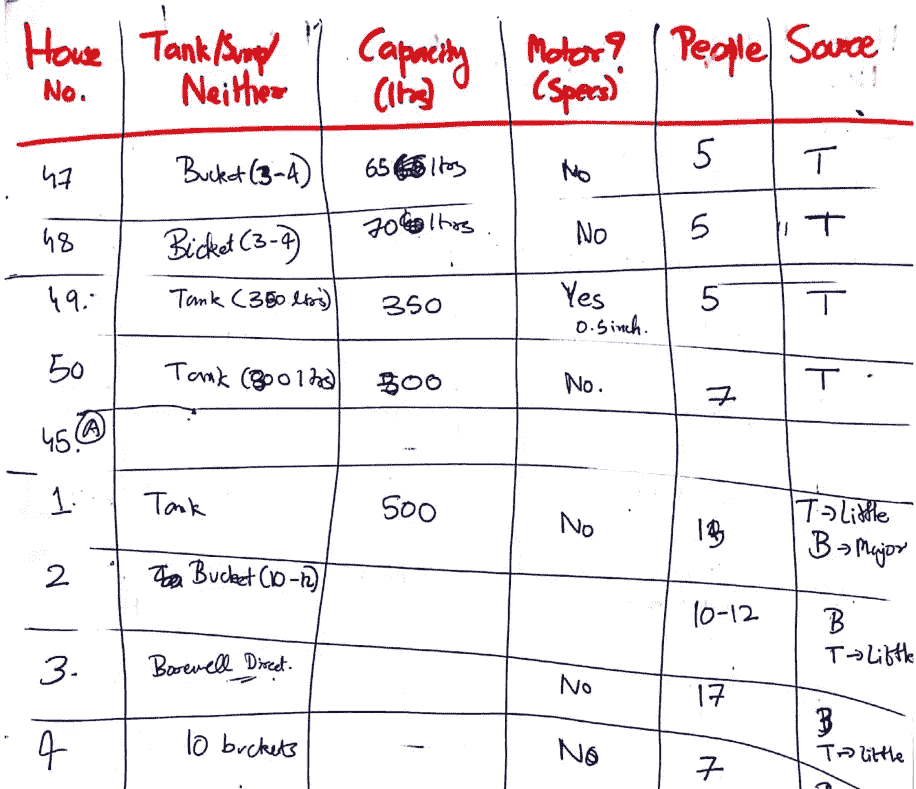 House No. Tank/Sump/Neither Capacity (ltrs) Motor? (Specs) People Source
47 Bucket (3-4) 65 ltrs No 5 T
48 Bicket (3-4) 70 ltrs No 5 T
49. Tank (350 ltrs) 350 Yes 0.5 inch. 5 T
50 Tank (300 ltrs) 300 No. 7 T
45. A -
1. Tank 500 No T→Little B→Major
2 Bucket (10-12) 10-12 B T→Little
3. Borewell Direct. No 17 B T→Little
4 10 buckets - No 7